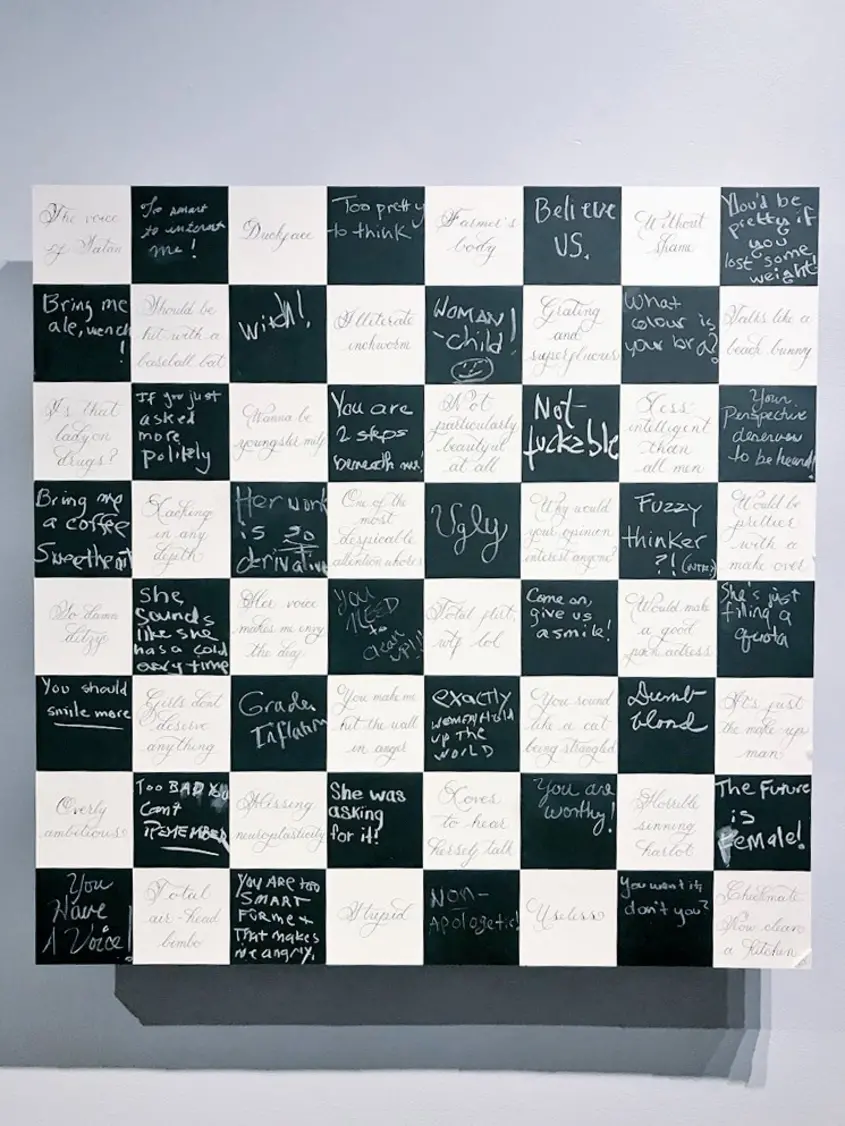 The voice
of Satan
To smart
to interest
me!
Duckface
Too pretty
to think
Farmer's
body
Believe
US.
Without
shame
You'd be
pretty if
you
lost some
weight!
Bring me
ale, wench
!
Should be
hit with a
baseball bat
Witch!
Illiterate
inchworm
WOMAN
-child!
Grating
and
superfluous
What
colour is
your bra?
Talks like a
beach bunny
Is that
lady on
drugs?
If you just
asked
more
politely
Wanna be
youngster milf
You are
2 steps
beneath me!
Not
particularly
beautiful
at all
Not-
fuckable
Less
intelligent
than
all men
Your
Perspective
deserves
to be heard!
Bring me
a coffee
Sweetheart
Lacking
in any
depth
Her work
is so
derivative
One of the
most
despicable
attention whores
Ugly
Why would
your opinion
interest anyone?
Fuzzy
thinker
?!
Would be
prettier
with a
make over
So damn
ditzy
She
sounds
like she
has a cold
every time
Her voice
makes me envy
the deaf
You
NEED
to
clean
up!!!
Total flirt,
wtf lol
Come on,
give us
a smile!
Would make
a good
porn actress
She's just
filling a
quota
You should
smile more
Girls don't
deserve
anything
Grade
Inflation
You make me
hit the wall
in anger
exactly
women hold
up the
WORLD
You sound
like a cat
being strangled
Dumb
blond
It's just
the make-up
man
Overly
ambitious
Too BAD YOU
Can't
REMEMBER
Missing
neuroplasticity
She was
asking
for it!
Loves
to hear
herself talk
You are
worthy!
Horrible
sinning
harlot
The Future
is
Female!
You
Have
A Voice!
Total
air-head
bimbo
YOU ARE too
SMART
FOR me &
That makes
me angry.
Stupid
Non-
Apologetic!
Useless
You want it,
don't you?
Checkmate
Now clean
a kitchen